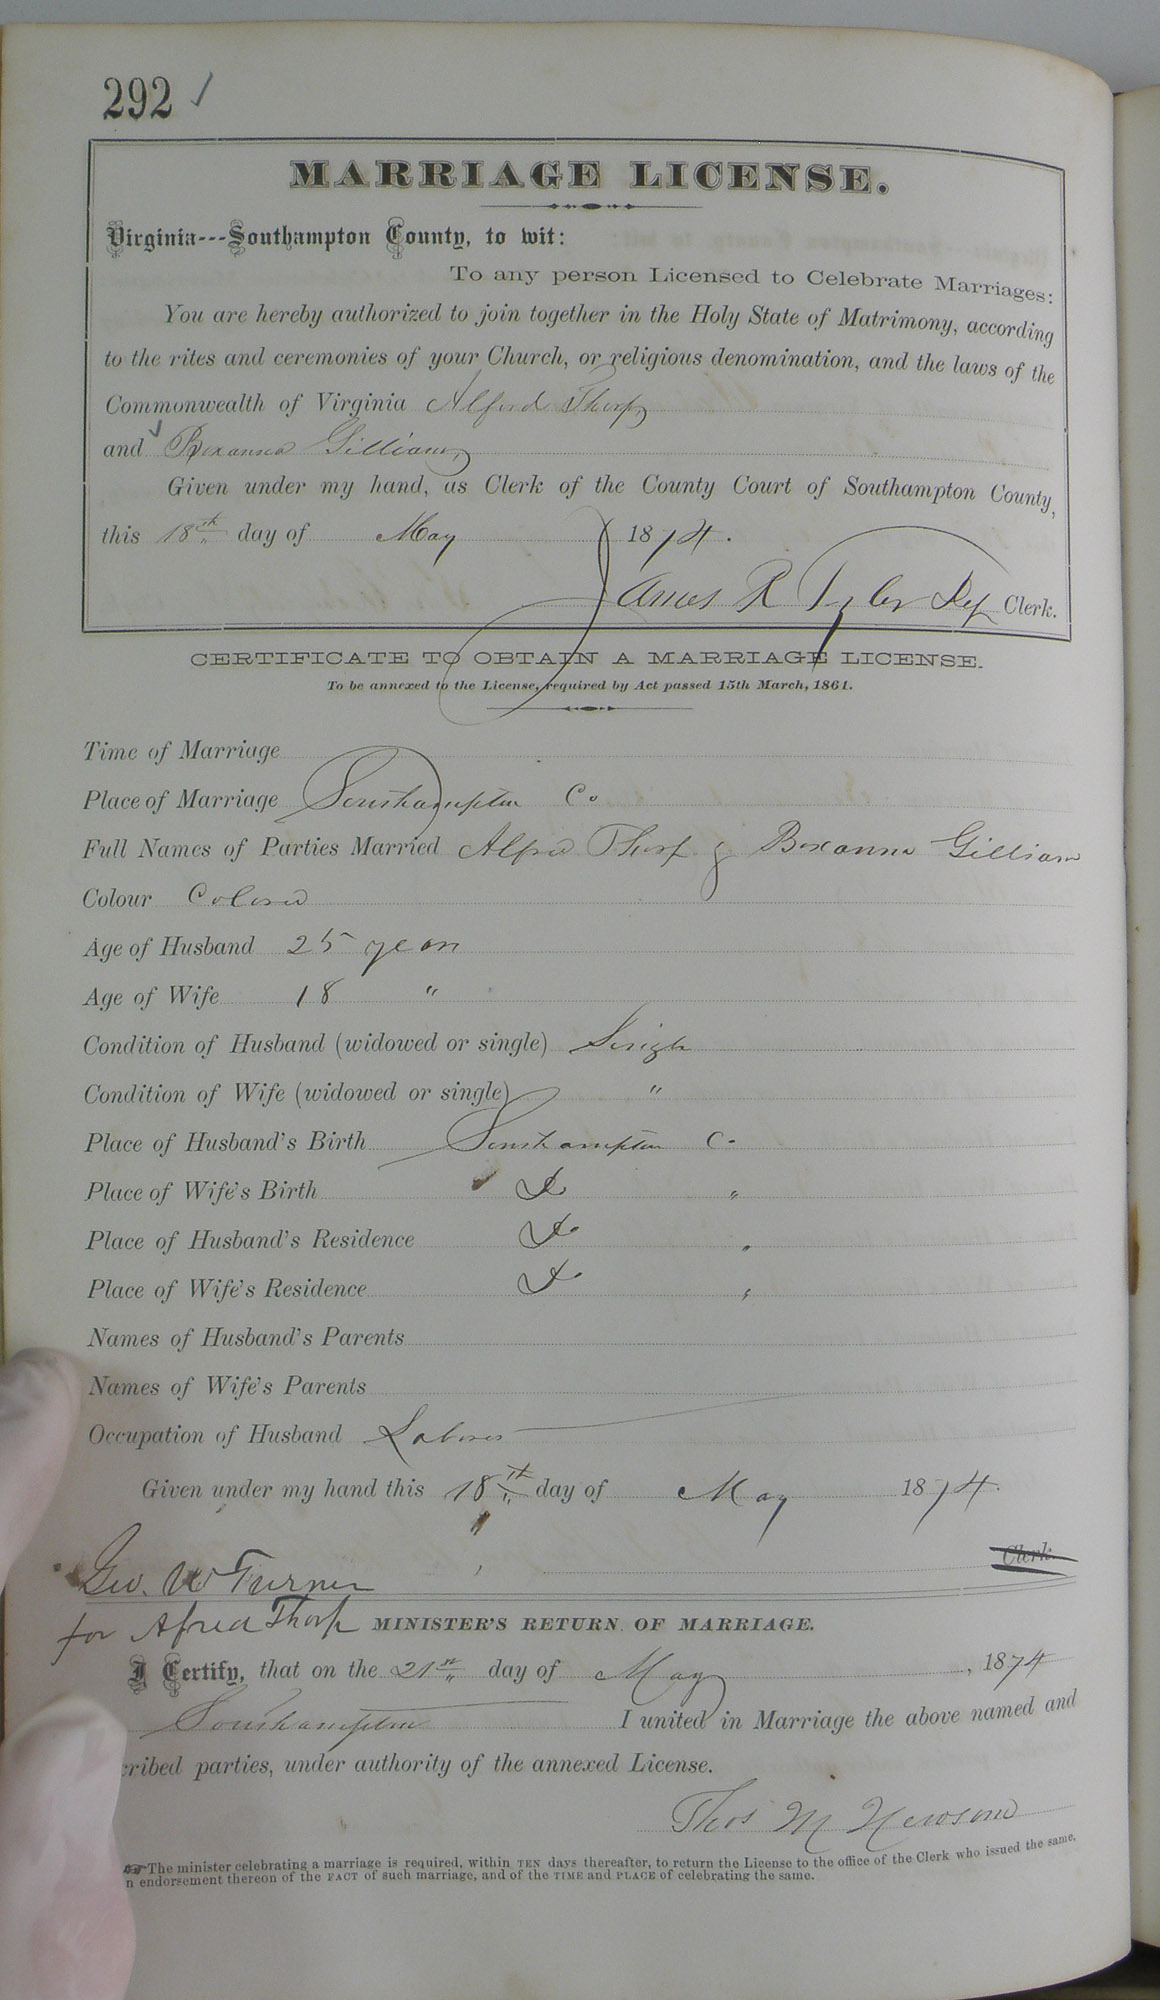 292 ✓
MARRIAGE LICENSE.
Virginia---Southampton County, to wit:
To any person Licensed to Celebrate Marriages:
You are hereby authorized to join together in the Holy State of Matrimony, according
to the rites and ceremonies of your Church, or religious denomination, and the laws of the
Commonwealth of Virginia Alfred Thorp
and Roxanna Gilliam,
Given under my hand, as Clerk of the County Court of Southampton County,
this 18th day of May 1874.
James R Tyler Dep Clerk.
CERTIFICATE TO OBTAIN A MARRIAGE LICENSE.
To be annexed to the License, required by Act passed 15th March, 1861.
Time of Marriage
Place of Marriage Southampton Co
Full Names of Parties Married Alfred Thorp & Roxanna Gilliam
Colour Colored
Age of Husband 25 years
Age of Wife 18 "
Condition of Husband (widowed or single) Single
Condition of Wife (widowed or single) "
Place of Husband's Birth Southampton Co
Place of Wife's Birth Do "
Place of Husband's Residence Do "
Place of Wife's Residence Do "
Names of Husband's Parents
Names of Wife's Parents
Occupation of Husband Laborer
Given under my hand this 18th day of May 1874.
Clerk.
Geo. W Turner
for Afred Thorp MINISTER'S RETURN OF MARRIAGE.
I Certify, that on the 21st day of May, 1874
Southampton I united in Marriage the above named and
cribed parties, under authority of the annexed License.
Thos M Newsom
The minister celebrating a marriage is required, within TEN days thereafter, to return the License to the office of the Clerk who issued the same,
n endorsement thereon of the FACT of such marriage, and of the TIME and PLACE of celebrating the same.